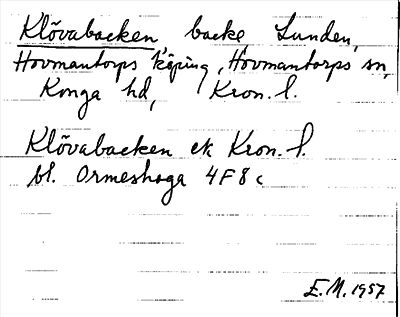 Klövabacken, backe, Lunden,
Hovmantorps köping, Hovmantorps sn,
Konga hd, Kron. l.
Klövabacken ek Kron. l.
bl. Ormeshaga 4F8c
E.M. 1957